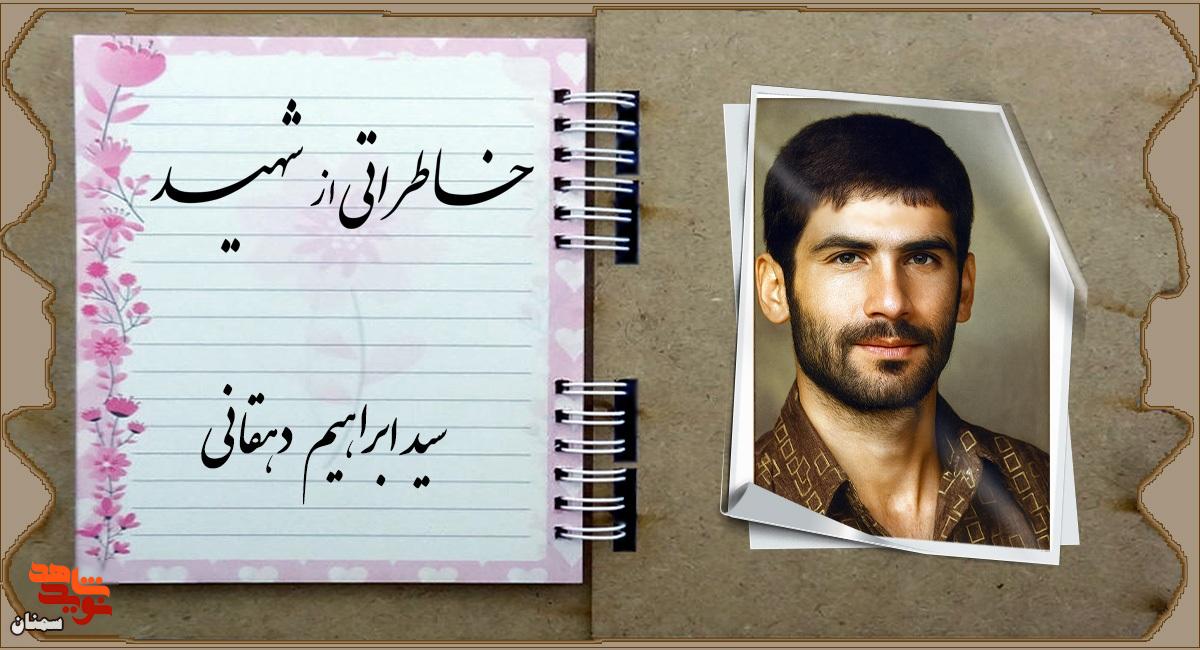 خاطراتی از شهید
سید ابراهیم دهقانی
نوید شاهد
سمنان